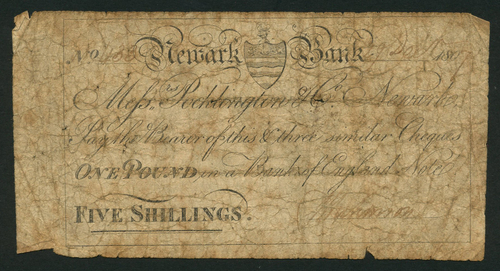 No Newark Bank 18
Messrs. Pocklington & Co. Newark
Pay the Bearer of this & three similar Cheques
ONE POUND in a Bank of England Note
FIVE SHILLINGS.